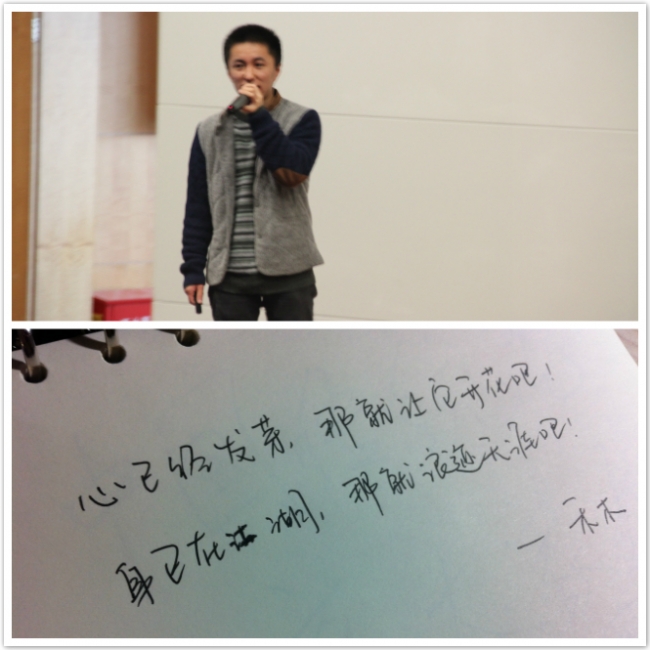 心已经发芽，那就让它开花吧！
身已在江湖，那就浪迹天涯吧！
— 禾木